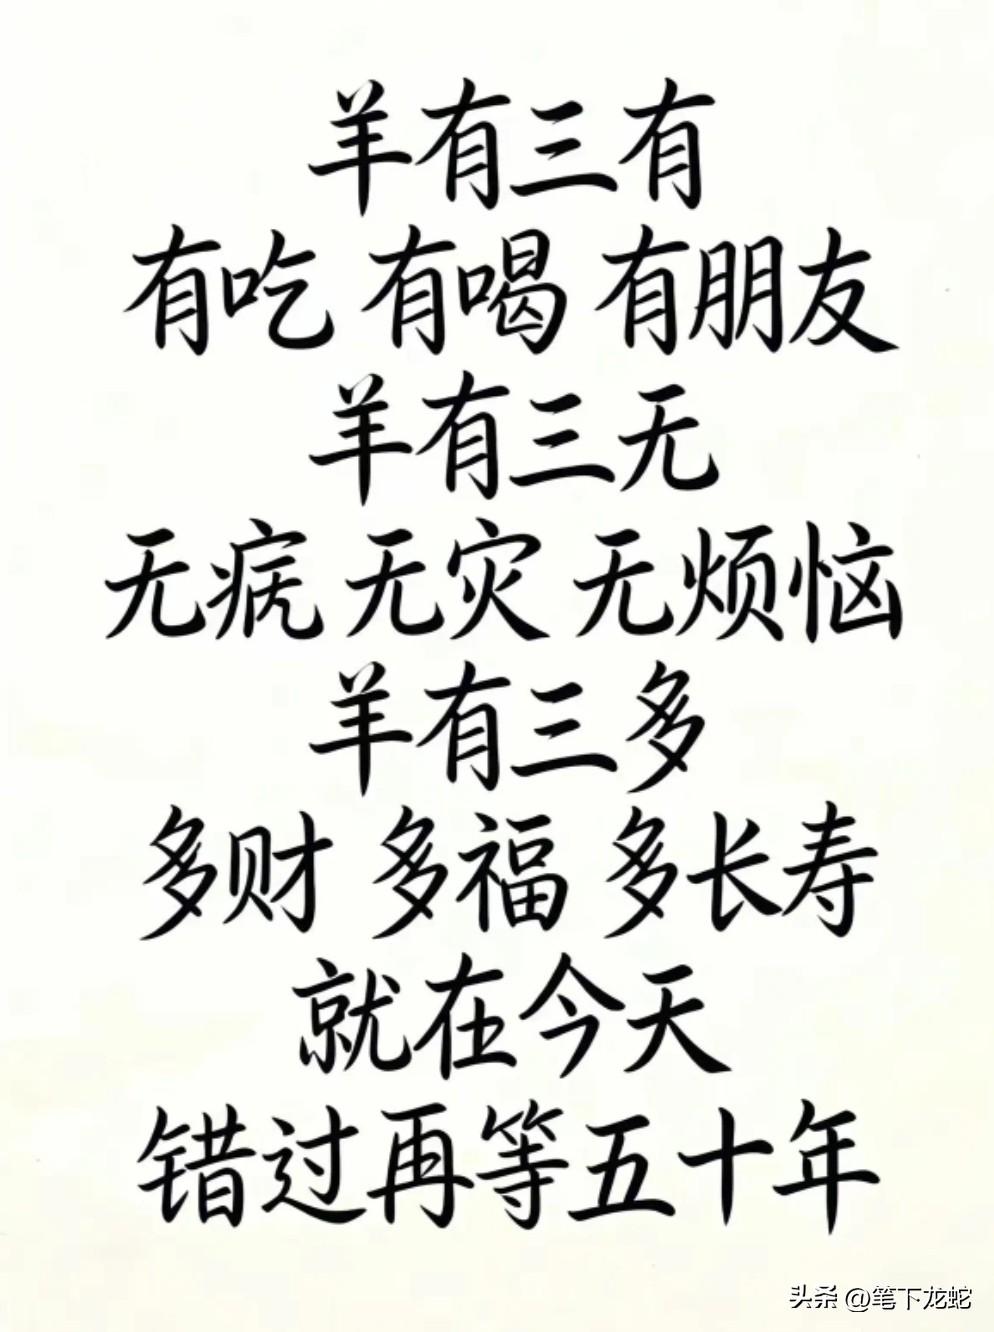 羊有三有
有吃 有喝 有朋友
羊有三无
无病 无灾 无烦恼
羊有三多
多财 多福 多长寿
就在今天
错过再等五十年
头条 @笔下龙蛇